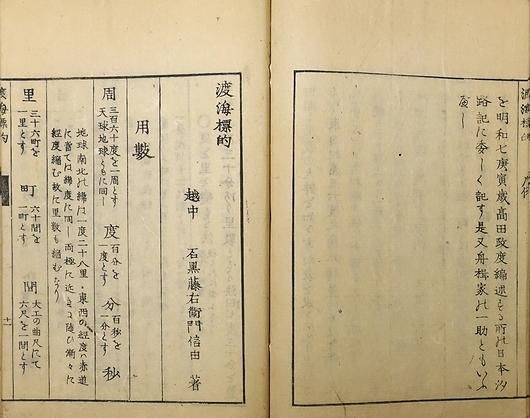 を明和七庚寅歳高田政度編述する所の日本汐
路記に委しく記す是又舟楫家の一助ともいふ
べし
渡海標的
越中 石黒藤右衛門信由 著
用数
周 三百六十度を一周とす
天球地球ともに同し
度 百分を
一度とす
分 百秒を
一分とす
秒
地球南北の緯は一度二十八里東西の経度は赤道
に当ては緯度に同し両極に近きに随ひ漸々に
経度縮む故に里数も縮むなり
里 三十六町を
一里とす
町 六十間を
一町とす
間 大工の曲尺にて
六尺を一間とす
渡海標的
十一